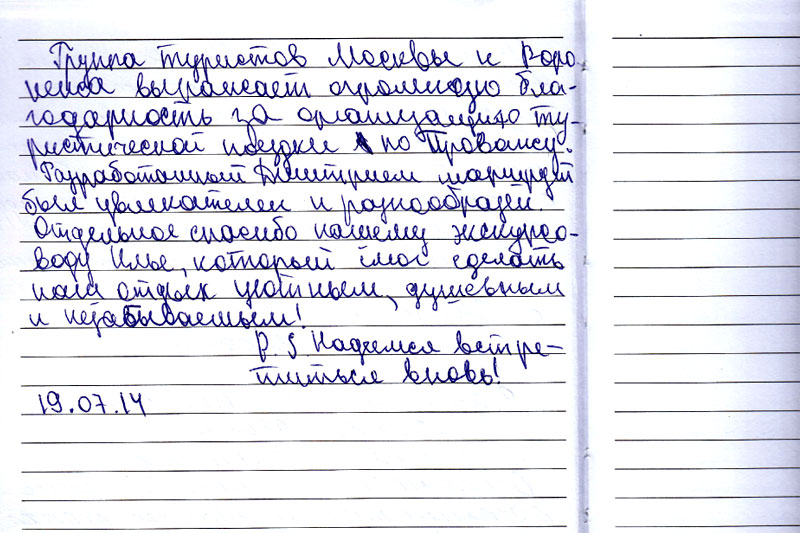 Группа туристов Москвы и Воро
нежа выражает огромную бла-
годарность за организацию ту-
ристической поездки по Провансу.
Разработанный Дмитрием маршрут
был увлекателен и разнообразен.
Отдельное спасибо нашему экскурсо-
воду Илье, который смог сделать
наш отдых уютным, душевным
и незабываемым!
P.S Надеемся встре-
титься вновь!
19.07.14